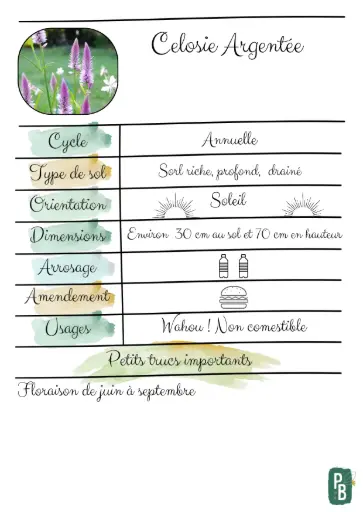 Celosie Argentée
Cycle Annuelle
Type de sol Sorl riche, profond, drainé
Orientation Soleil
Dimensions Environ 30 cm au sol et 70 cm en hauteur
Arrosage
Amendement
Usages Wahou ! Non comestible
Petits trucs importants
Floraison de juin à septembre
PB